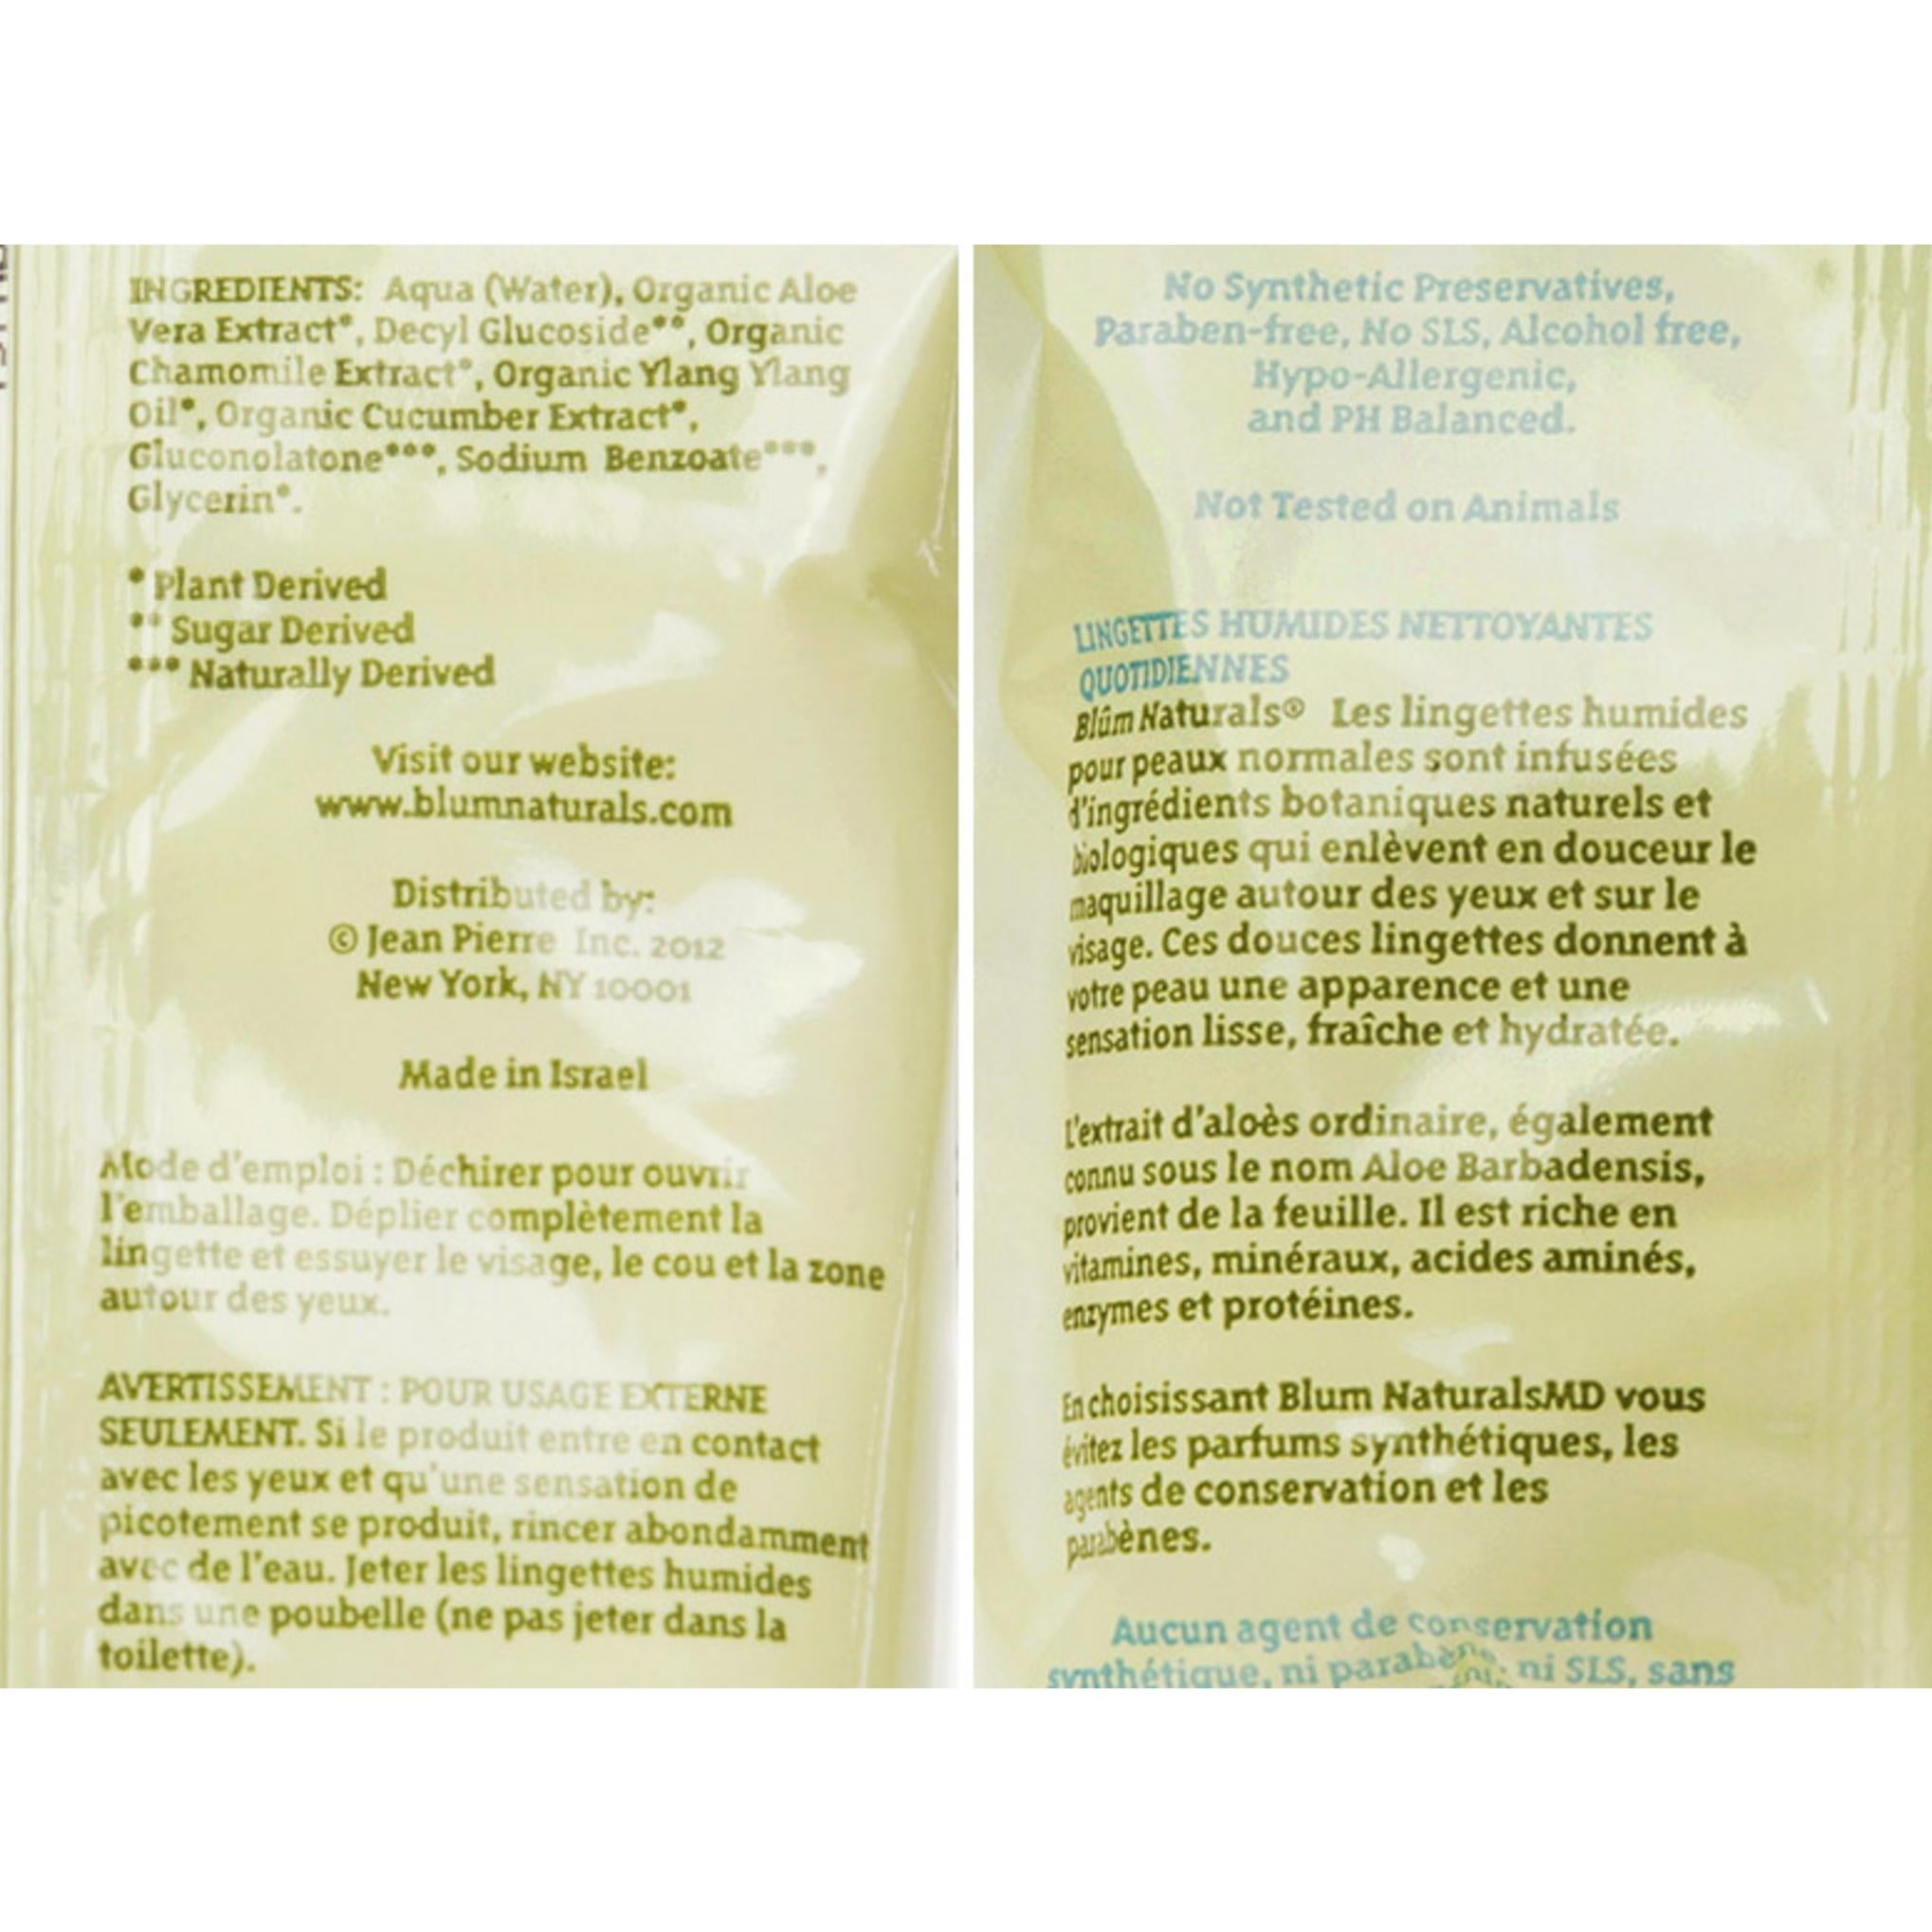 INGREDIENTS: Aqua (Water), Organic Aloe
Vera Extract*, Decyl Glucoside**, Organic
Chamomile Extract*, Organic Ylang Ylang
Oil*, Organic Cucumber Extract*,
Gluconolatone***, Sodium Benzoate***,
Glycerin*.
* Plant Derived
** Sugar Derived
*** Naturally Derived
Visit our website:
www.blumnaturals.com
Distributed by:
© Jean Pierre Inc. 2012
New York, NY 10001
Made in Israel
Mode d'emploi : Déchirer pour ouvrir
l'emballage. Déplier complètement la
lingette et essuyer le visage, le cou et la zone
autour des yeux.
AVERTISSEMENT : POUR USAGE EXTERNE
SEULEMENT. Si le produit entre en contact
avec les yeux et qu'une sensation de
picotement se produit, rincer abondamment
avec de l'eau. Jeter les lingettes humides
dans une poubelle (ne pas jeter dans la
toilette).
No Synthetic Preservatives,
Paraben-free, No SLS, Alcohol free,
Hypo-Allergenic,
and PH Balanced.
Not Tested on Animals
LINGETTES HUMIDES NETTOYANTES
QUOTIDIENNES
Blūm Naturals® Les lingettes humides
pour peaux normales sont infusées
d'ingrédients botaniques naturels et
biologiques qui enlèvent en douceur le
maquillage autour des yeux et sur le
visage. Ces douces lingettes donnent à
votre peau une apparence et une
sensation lisse, fraîche et hydratée.
L'extrait d'aloès ordinaire, également
connu sous le nom Aloe Barbadensis,
provient de la feuille. Il est riche en
vitamines, minéraux, acides aminés,
enzymes et protéines.
En choisissant Blum NaturalsMD vous
évitez les parfums synthétiques, les
agents de conservation et les
parabènes.
Aucun agent de conservation
synthétique, ni parabène, ni SLS, sans